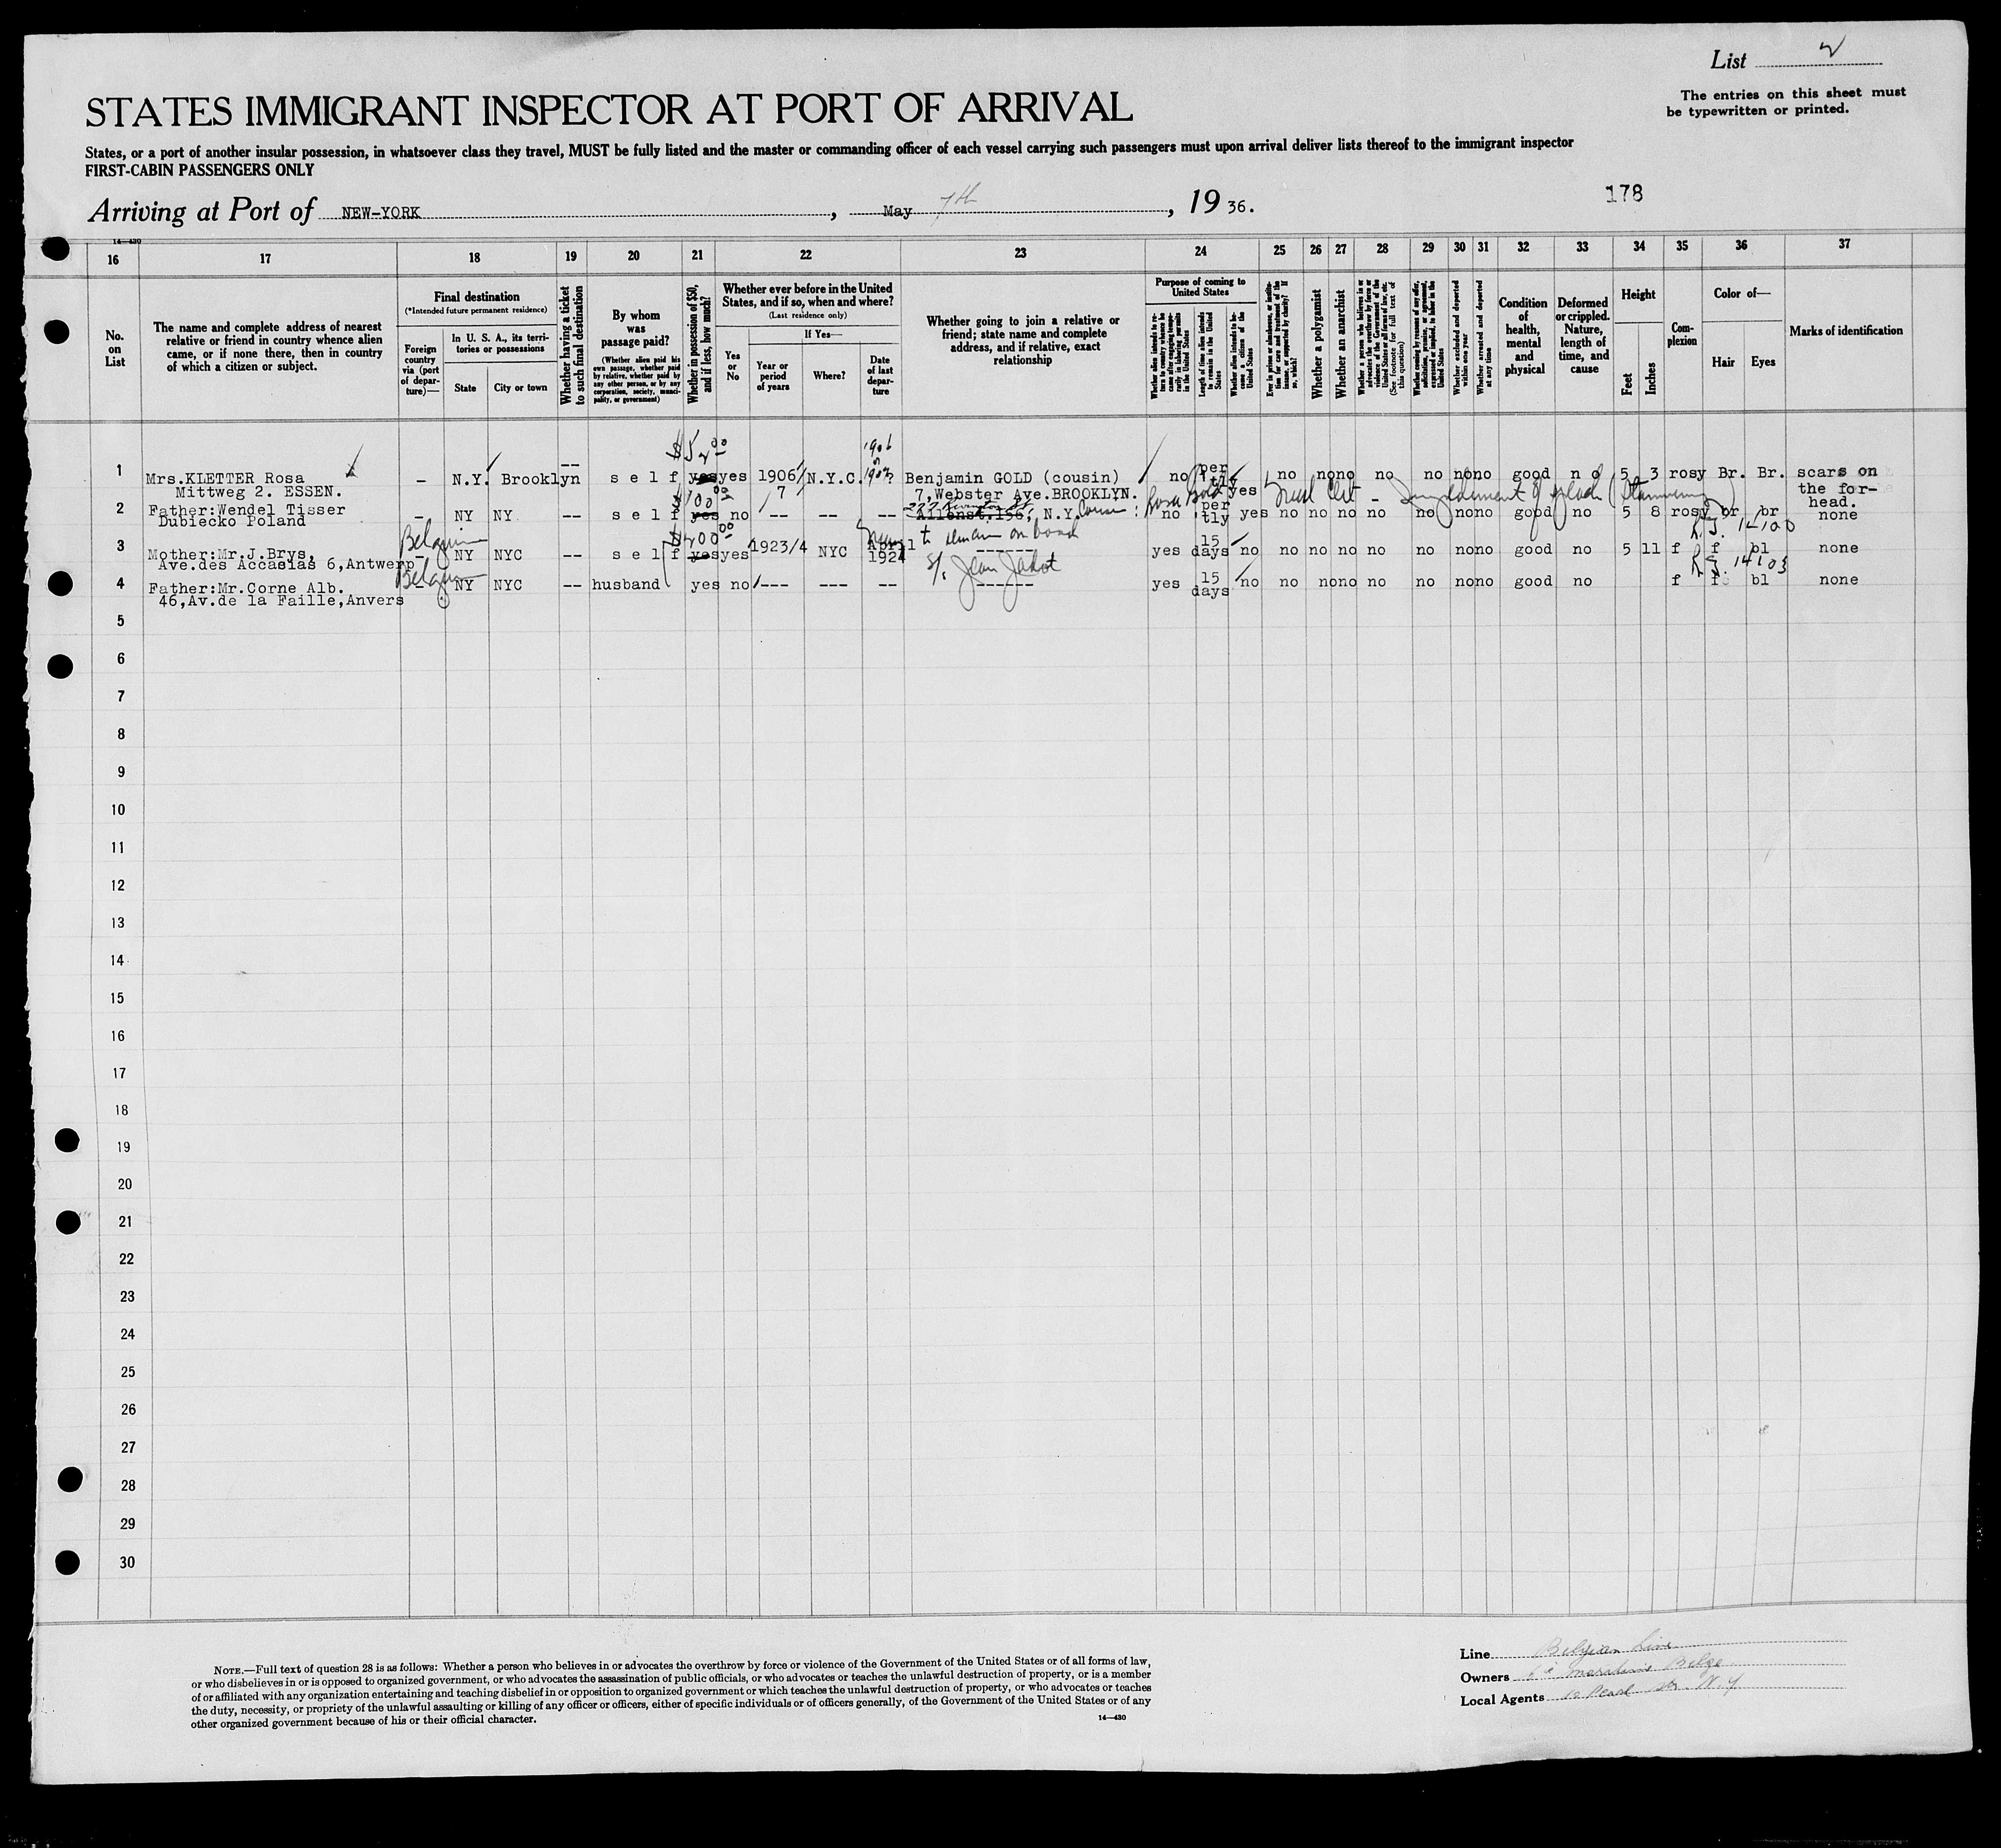 List 2
The entries on this sheet must
be typewritten or printed.
STATES IMMIGRANT INSPECTOR AT PORT OF ARRIVAL
States, or a port of another insular possession, in whatsoever class they travel, MUST be fully listed and the master or commanding officer of each vessel carrying such passengers must upon arrival deliver lists thereof to the immigrant inspector
FIRST-CABIN PASSENGERS ONLY
Arriving at Port of NEW-YORK, May 7th, 19 36.
178
14—430
16 17 18 19 20 21 22 23 24 25 26 27 28 29 30 31 32 33 34 35 36 37
No. on List
The name and complete address of nearest
relative or friend in country whence alien
came, or if none there, then in country
of which a citizen or subject.
Final destination
(*Intended future permanent residence)
Foreign country via (port of departure)—
In U. S. A., its territories or possessions
State
City or town
Whether having a ticket to such final destination
By whom was passage paid?
(Whether alien paid his own passage, whether paid by relative, whether paid by any other person, or by any corporation, society, municipality, or government)
Whether in possession of $50, and if less, how much?
Whether ever before in the United States, and if so, when and where?
(Last residence only)
Yes or No
If Yes—
Year or period of years
Where?
Date of last departure
Whether going to join a relative or
friend; state name and complete
address, and if relative, exact
relationship
Purpose of coming to United States
Whether alien intends to return to country whence he came after engaging temporarily in laboring pursuits in the United States
Length of time alien intends to remain in the United States
Whether alien intends to become a citizen of the United States
Ever in prison or almshouse, or institution for care and treatment of the insane, or supported by charity? If so, which?
Whether a polygamist
Whether an anarchist
Whether a person who believes in or advocates the overthrow by force or violence of the Government of the United States or all forms of law, etc. (See footnote for full text of this question)
Whether coming by reason of any offer, solicitation, promise, or agreement, expressed or implied, to labor in the United States
Whether excluded and deported within one year
Whether arrested and deported at any time
Condition of health, mental and physical
Deformed or crippled. Nature, length of time, and cause
Height
Feet
Inches
Complexion
Color of—
Hair
Eyes
Marks of identification
$5 00 1906
1 Mrs.KLETTER Rosa – N.Y. Brooklyn -- self yes yes 1906/ N.Y.C. 1907? Benjamin GOLD (cousin) no per no no no no no no no good no 5 3 rosy Br. Br. scars on
Mittweg 2. ESSEN. 7 7,Webster Ave.BROOKLYN. tly yes the for-
head.
$100 00 Rosa Gold Impediment of speech (Stammering)
2 Father:Wendel Tisser – NY NY -- self yes no -- -- -- Allenst.156, N.Y. Cousin: no per yes no no no no no no no good no 5 8 rosy br br none
Dubiecko Poland tly
Belgium $200 00 to remain on board 14100
3 Mother:Mr.J.Brys, NY NYC -- self yes yes 1923/4 NYC April ------ yes 15 no no no no no no no no good no 5 11 f f bl none
Ave.des Accasias 6,Antwerp 1924 days
S/. Jean Jadot 14103
Belgium
4 Father:Mr.Corne Alb. – NY NYC -- husband yes no --- --- -- ------ yes 15 no no no no no no no no good no f f bl none
46,Av.de la Faille,Anvers days
5
6
7
8
9
10
11
12
13
14
15
16
17
18
19
20
21
22
23
24
25
26
27
28
29
30
NOTE.—Full text of question 28 is as follows: Whether a person who believes in or advocates the overthrow by force or violence of the Government of the United States or of all forms of law,
or who disbelieves in or is opposed to organized government, or who advocates the assassination of public officials, or who advocates or teaches the unlawful destruction of property, or is a member
of or affiliated with any organization entertaining and teaching disbelief in or opposition to organized government or which teaches the unlawful destruction of property, or who advocates or teaches
the duty, necessity, or propriety of the unlawful assaulting or killing of any officer or officers, either of specific individuals or of officers generally, of the Government of the United States or of any
other organized government because of his or their official character.
14—430
Line Belgian Line
Owners Cie Maritime Belge
Local Agents 10 Pearl Str. N.Y